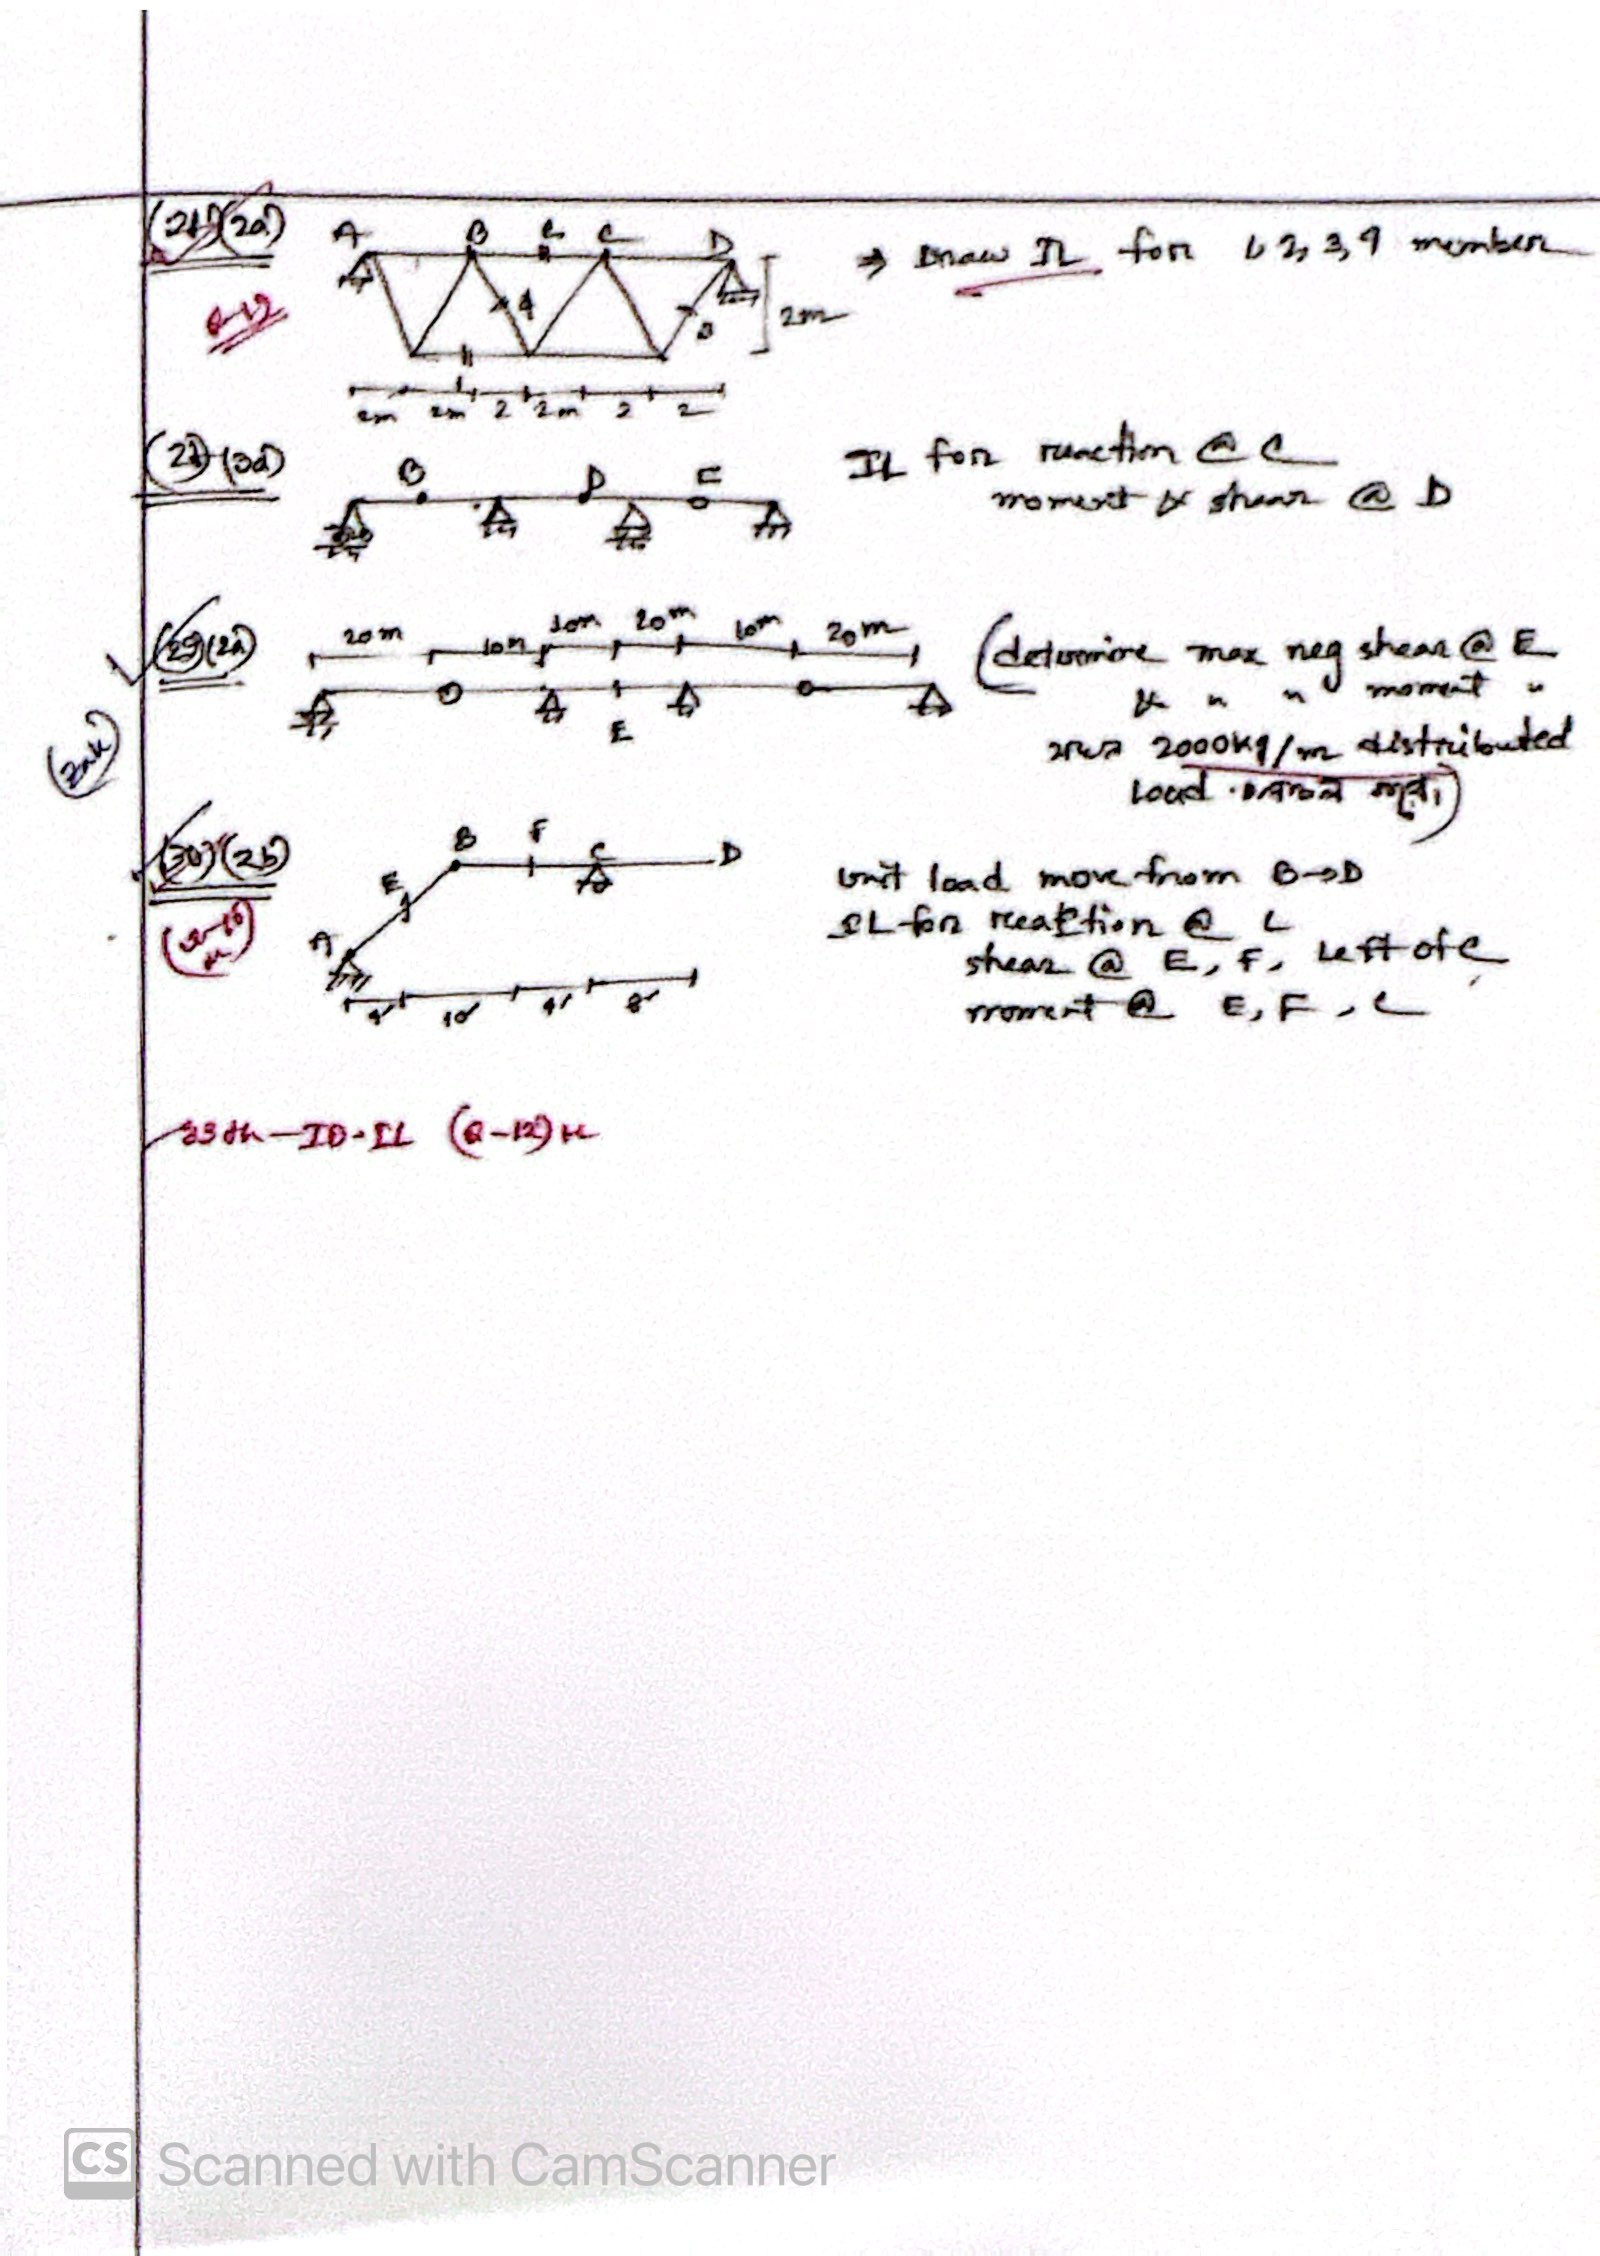 (2a)
A B C D
⇒ Draw IL for 1, 2, 3, 4 member
4
3
2m
1
2m 2m 2 2m 2 2
(3a)
B D E
IL for reaction @ C
moment & shear @ D
(29)(2a)
20m 10m 10m 20m 10m 20m
E
(determine max neg shear @ E
& " " moment "
2000kg/m distributed
Load
(30)(2b)
A E B F C D
Unit load move from B→D
IL for reaction @ C
shear @ E, F, Left of C
moment @ E, F, C
4' 10' 4' 8'
IL (Q-12)
CS Scanned with CamScanner